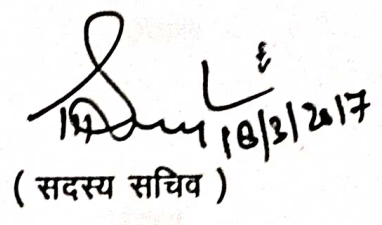 18/3/2017
( सदस्य सचिव )